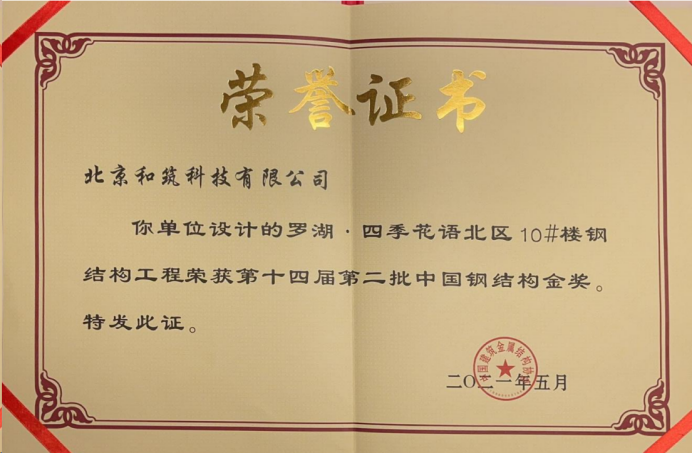 荣誉证书
北京和筑科技有限公司
你单位设计的罗湖·四季花语北区10#楼钢
结构工程荣获第十四届第二批中国钢结构金奖。
特发此证。
中国建筑金属结构协会
二〇二一年五月